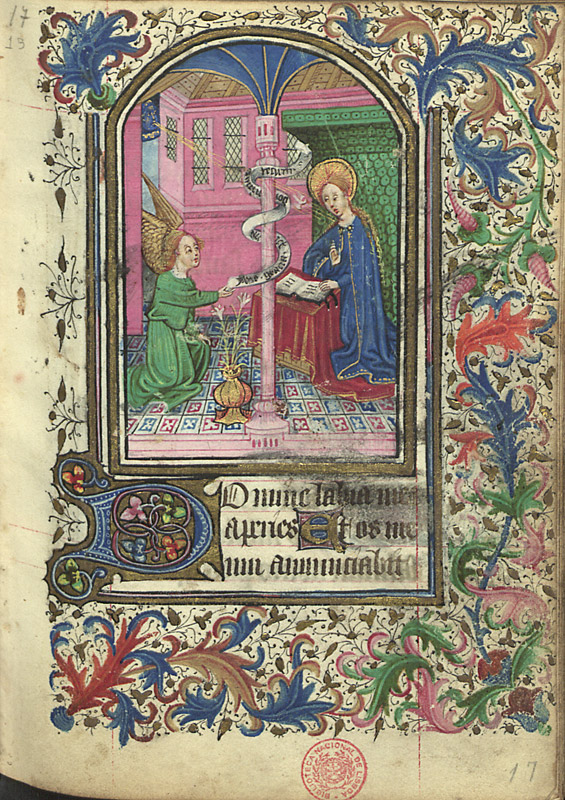 17
DOmine labia mea
aperies Et os me
um annunciabit
BIBLIOTECA NACIONAL DE LISBOA
17